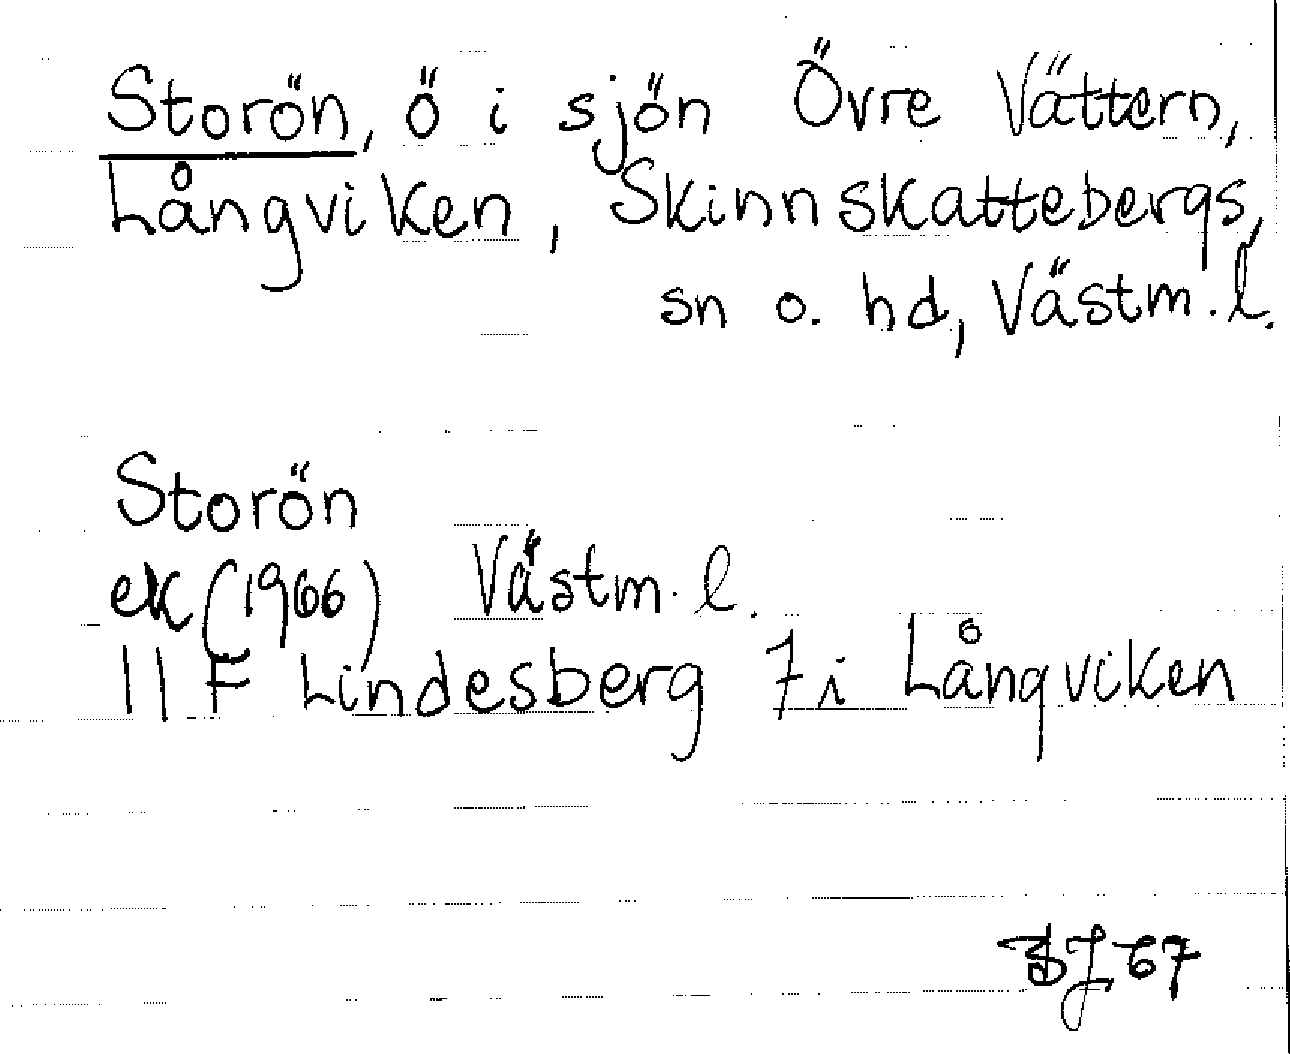 Storön, ö i sjön Övre Vättern,
Långviken, Skinnskattebergs,
sn o. hd, Västm. l.
Storön
ek (1966) Västm. l.
11 F Lindesberg 7i Långviken
BJ 67